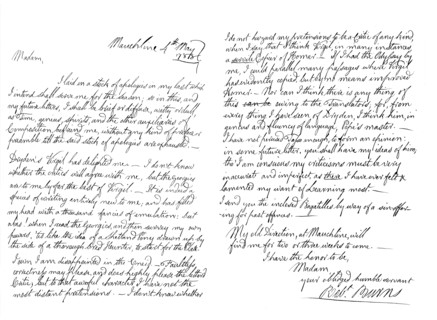 Mauchline 4th May
1788
Madam,
I laid in a stock of apologies in my last which
I intend shall serve for the season, so in this, and
my future letters, I shall be brief or diffuse, witty or dull,
as Time, genius, spirits and the other auxiliaries of
Composition befriend me, without any kind of preface
preamble till the said stock of apologies are exhausted —
Dryden's Virgil has delighted me — I don't know
whether the critics will agree with me, but the georgics
are to me by far the best of Virgil — It is indeed a
species of writing entirely new to me, and has filled
my head with a thousand fancies of emulation: but
alas! when I read the georgics, and then survey my own
powers, 'tis like the idea of a Shetland Pony drawn up by
the side of a thorough bred Hunter, to start for the Plate
I own I am disappointed in the Eneid — Faultless
correctness may please, and does highly please the lettered
Critic; but to that awful character I have not the
most distant pretensions — I don't know whether
I do not hazard my pretensions to be a Critic of any kind
when I say that I think Virgil, in many instances,
a servile Copier of Homer — If I had the Odyssey by
me, I could parallel many passages where Virgil
has evidently copied, but by no means improved
Homer — Nor can I think there is any thing of
this owing to the Translators; for, from
every thing I have seen of Dryden, I think him, in
genius and fluency of language, Pope's master —
I have not perused Tasso enough, to form an opinion:
in some future letter, you shall have my ideas of him,
tho' I am conscious my criticisms must be very
inaccurate and imperfect, as there I have ever felt &
lamented my want of Learning most
I send you the inclosed Bagatelles by way of a sin offer-
ing for past offences —
My old Direction, at Mauchline, will
find me for two or three weeks to come —
I have the honor to be,
Madam,
your obliged humble servant
Robt. Burns